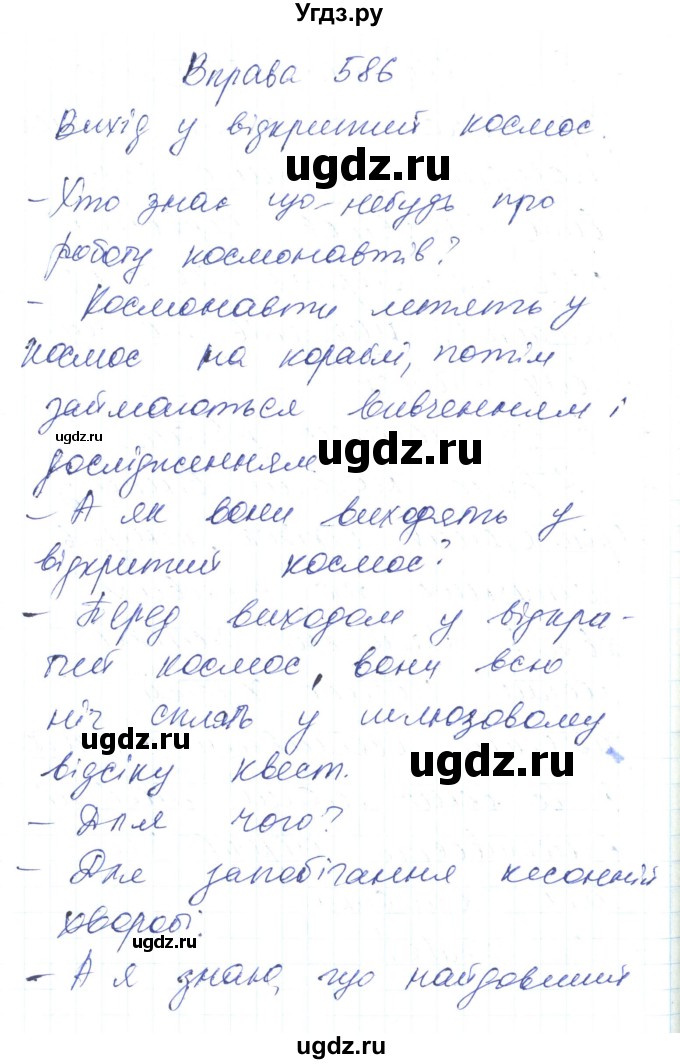 Угдз.ру
Вправа 586
Вихід у відкритий космос.
ugdz.ru
- Хто знає що-небудь про
роботу космонавтів?
- Космонавти летять у
космос на кораблі, потім
займаються вивченням і
ugdz.ru
ugdz.ru
дослідженням.
- А як вони виходять у
відкритий космос?
- Перед виходом у відкри-
тий космос, вони всю
ніч сплять у шлюзовому
ugdz.ru
ugdz.ru
відсіку квест.
- Для чого?
- Для запобігання кесонній
хворобі.
ugdz.ru
- А я знаю, що найдовший
ugdz.ru